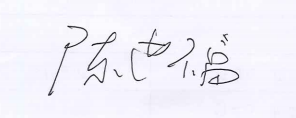 陈世福